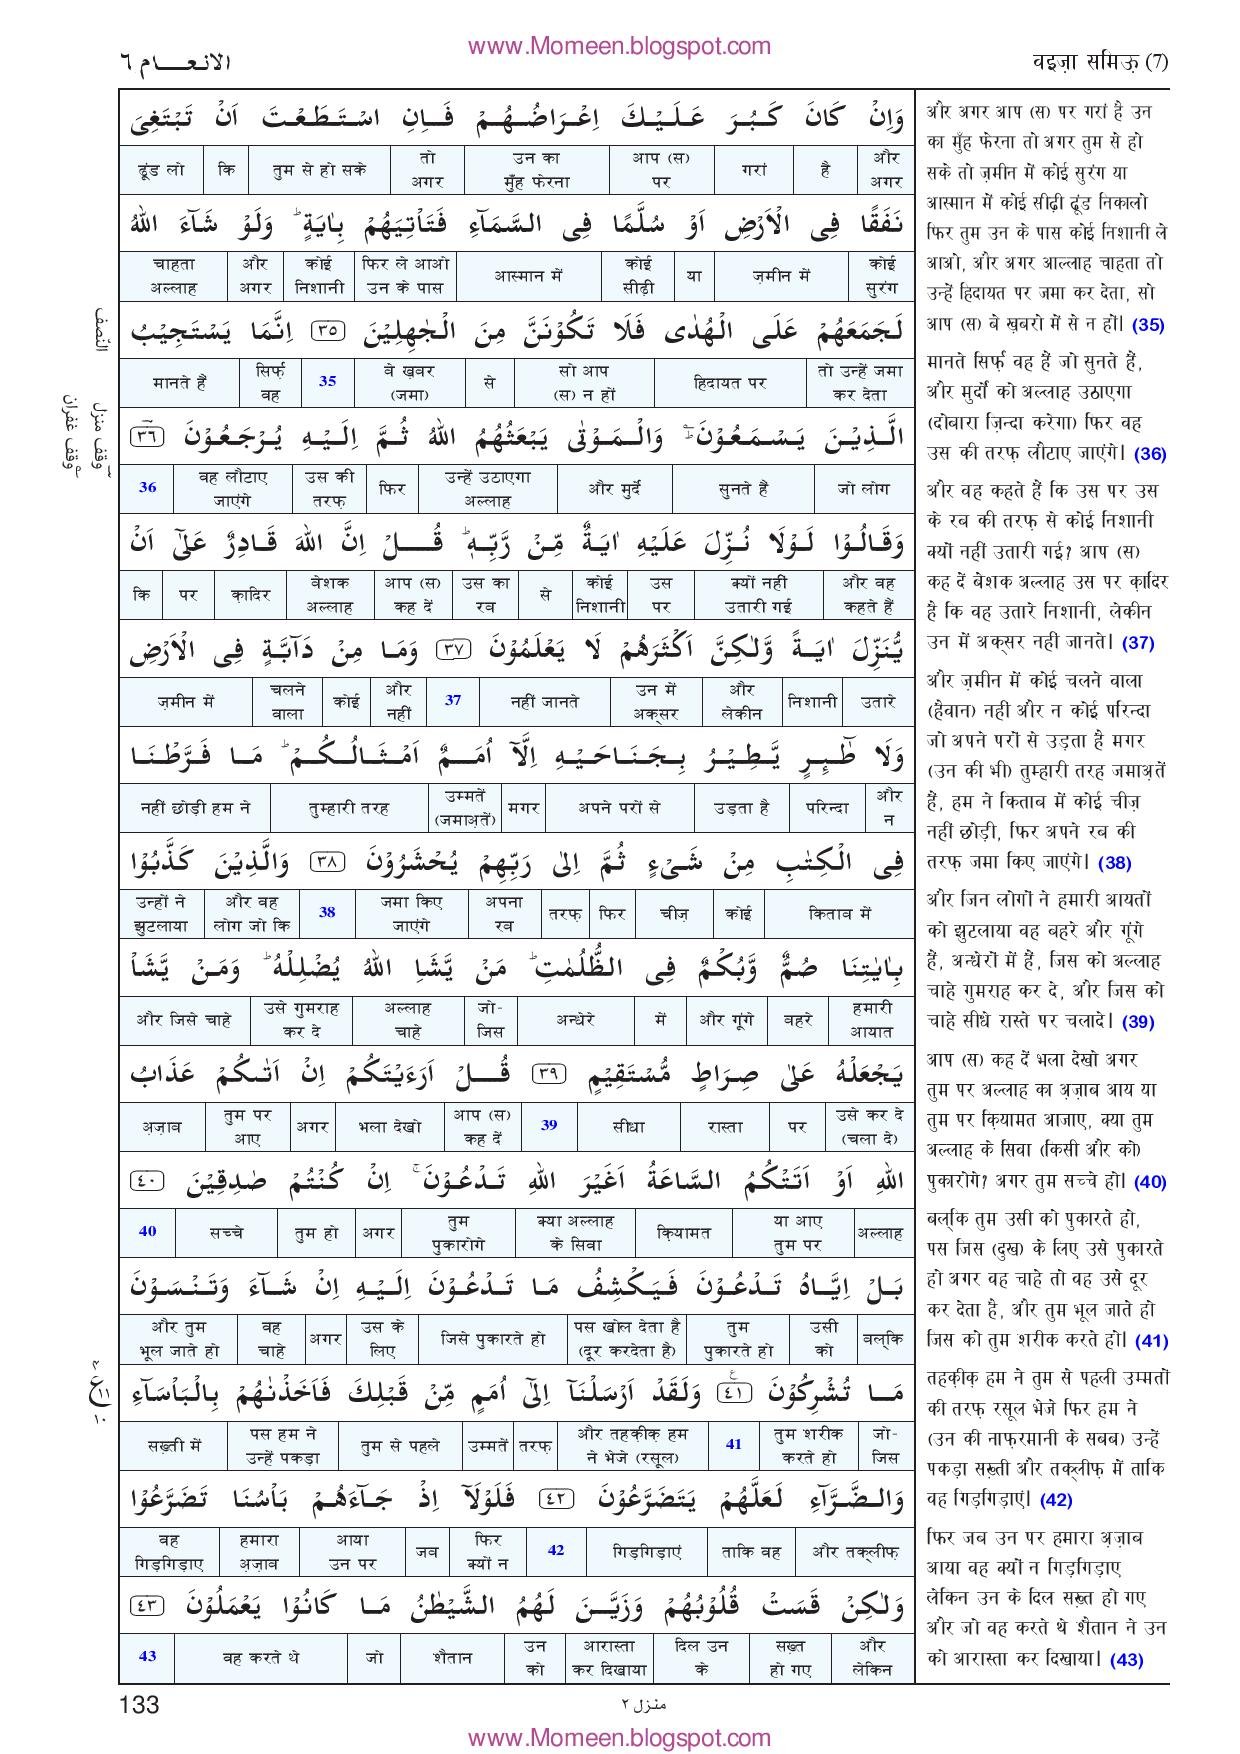 www.Momeen.blogspot.com
الانعام ٦
वइज़ा समिऊ़ (7)
وَاِنْ كَانَ كَبُرَ عَلَيْكَ اِعْرَاضُهُمْ فَاِنِ اسْتَطَعْتَ اَنْ تَبْتَغِىَ
और अगर | है | गरां | आप (स) पर | उन का मुँह फेरना | तो अगर | तुम से हो सके | कि | ढूंड लो
نَفَقًا فِى الْاَرْضِ اَوْ سُلَّمًا فِى السَّمَآءِ فَتَاْتِيَهُمْ بِاٰيَةٍ ؕ وَلَوْ شَآءَ اللّٰهُ
कोई सुरंग | ज़मीन में | या | कोई सीढ़ी | आस्मान में | फिर ले आओ उन के पास | कोई निशानी | और अगर | चाहता अल्लाह
لَجَمَعَهُمْ عَلَى الْهُدٰى فَلَا تَكُوْنَنَّ مِنَ الْجٰهِلِيْنَ ٣٥ اِنَّمَا يَسْتَجِيْبُ
तो उन्हें जमा कर देता | हिदायत पर | सो आप (स) न हों | से | बे ख़बर (जमा) | 35 | सिर्फ़ वह | मानते हैं
الَّذِيْنَ يَسْمَعُوْنَ ؕ وَالْمَوْتٰى يَبْعَثُهُمُ اللّٰهُ ثُمَّ اِلَيْهِ يُرْجَعُوْنَ ٣٦
जो लोग | सुनते हैं | और मुर्दे | उन्हें उठाएगा अल्लाह | फिर | उस की तरफ़ | वह लौटाए जाएंगे | 36
وَقَالُوْا لَوْلَا نُزِّلَ عَلَيْهِ اٰيَةٌ مِّنْ رَّبِّهٖ ؕ قُلْ اِنَّ اللّٰهَ قَادِرٌ عَلٰٓى اَنْ
और वह कहते हैं | क्यों नही उतारी गई | उस पर | कोई निशानी | से | उस का रब | आप (स) कह दें | बेशक अल्लाह | क़ादिर | पर | कि
يُّنَزِّلَ اٰيَةً وَّلٰكِنَّ اَكْثَرَهُمْ لَا يَعْلَمُوْنَ ٣٧ وَمَا مِنْ دَآبَّةٍ فِى الْاَرْضِ
उतारे | निशानी | और लेकीन | उन में अक्सर | नहीं जानते | 37 | और नहीं | कोई | चलने वाला | ज़मीन में
وَلَا طٰٓئِرٍ يَّطِيْرُ بِجَنَاحَيْهِ اِلَّآ اُمَمٌ اَمْثَالُكُمْ ؕ مَا فَرَّطْنَا
और न | परिन्दा | उड़ता है | अपने परों से | मगर | उम्मतें (जमाअ़तें) | तुम्हारी तरह | नहीं छोड़ी हम ने
فِى الْكِتٰبِ مِنْ شَىْءٍ ثُمَّ اِلٰى رَبِّهِمْ يُحْشَرُوْنَ ٣٨ وَالَّذِيْنَ كَذَّبُوْا
किताब में | कोई | चीज़ | फिर | तरफ़ | अपना रब | जमा किए जाएंगे | 38 | और वह लोग जो कि | उन्हों ने झुटलाया
بِاٰيٰتِنَا صُمٌّ وَّبُكْمٌ فِى الظُّلُمٰتِ ؕ مَنْ يَّشَاِ اللّٰهُ يُضْلِلْهُ ؕ وَمَنْ يَّشَاْ
हमारी आयात | बहरे | और गूंगे | में | अन्धेरे | जो-जिस | अल्लाह चाहे | उसे गुमराह कर दे | और जिसे चाहे
يَجْعَلْهُ عَلٰى صِرَاطٍ مُّسْتَقِيْمٍ ٣٩ قُلْ اَرَءَيْتَكُمْ اِنْ اَتٰىكُمْ عَذَابُ
उसे कर दे (चला दे) | पर | रास्ता | सीधा | 39 | आप (स) कह दें | भला देखो | अगर | तुम पर आए | अ़ज़ाब
اللّٰهِ اَوْ اَتَتْكُمُ السَّاعَةُ اَغَيْرَ اللّٰهِ تَدْعُوْنَ ۚ اِنْ كُنْتُمْ صٰدِقِيْنَ ٤٠
अल्लाह | या आए तुम पर | क़ियामत | क्या अल्लाह के सिवा | तुम पुकारोगे | अगर | तुम हो | सच्चे | 40
بَلْ اِيَّاهُ تَدْعُوْنَ فَيَكْشِفُ مَا تَدْعُوْنَ اِلَيْهِ اِنْ شَآءَ وَتَنْسَوْنَ
बल्कि | उसी को | तुम पुकारते हो | पस खोल देता है (दूर करदेता है) | जिसे पुकारते हो | उस के लिए | अगर | वह चाहे | और तुम भूल जाते हो
مَا تُشْرِكُوْنَ ٤١ وَلَقَدْ اَرْسَلْنَآ اِلٰٓى اُمَمٍ مِّنْ قَبْلِكَ فَاَخَذْنٰهُمْ بِالْبَاْسَآءِ
जो-जिस | तुम शरीक करते हो | 41 | और तहक़ीक़ हम ने भेजे (रसूल) | तरफ़ | उम्मतें | तुम से पहले | पस हम ने उन्हें पकड़ा | सख़्ती में
وَالضَّرَّآءِ لَعَلَّهُمْ يَتَضَرَّعُوْنَ ٤٢ فَلَوْلَآ اِذْ جَآءَهُمْ بَاْسُنَا تَضَرَّعُوْا
और तक्लीफ़ | ताकि वह | गिड़गिड़ाएं | 42 | फिर क्यों न | जब | आया उन पर | हमारा अ़ज़ाब | वह गिड़गिड़ाए
وَلٰكِنْ قَسَتْ قُلُوْبُهُمْ وَزَيَّنَ لَهُمُ الشَّيْطٰنُ مَا كَانُوْا يَعْمَلُوْنَ ٤٣
और लेकिन | सख़्त हो गए | दिल उन के | आरास्ता कर दिखाया | उन को | शैतान | जो | वह करते थे | 43
और अगर आप (स) पर गरां है उन
का मुँह फेरना तो अगर तुम से हो
सके तो ज़मीन में कोई सुरंग या
आस्मान में कोई सीढ़ी ढूंड निकालो
फिर तुम उन के पास कोई निशानी ले
आओ, और अगर आल्लाह चाहता तो
उन्हें हिदायत पर जमा कर देता, सो
आप (स) बे ख़बरो में से न हों। (35)
मानते सिर्फ़ वह हैं जो सुनते हैं,
और मुर्दों को अल्लाह उठाएगा
(दोबारा ज़िन्दा करेगा) फिर वह
उस की तरफ़ लौटाए जाएंगे। (36)
और वह कहते हैं कि उस पर उस
के रब की तरफ़ से कोई निशानी
क्यों नहीं उतारी गई? आप (स)
कह दें बेशक अल्लाह उस पर क़ादिर
है कि वह उतारे निशानी, लेकीन
उन में अक्सर नही जानते। (37)
और ज़मीन में कोई चलने वाला
(हैवान) नहीं और न कोई परिन्दा
जो अपने परों से उड़ता है मगर
(उन की भी) तुम्हारी तरह जमाअ़तें
हैं, हम ने किताब में कोई चीज़
नहीं छोड़ी, फिर अपने रब की
तरफ़ जमा किए जाएंगे। (38)
और जिन लोगों ने हमारी आयतों
को झुटलाया वह बहरे और गूंगे
हैं, अन्धेरों में हैं, जिस को अल्लाह
चाहे गुमराह कर दे, और जिस को
चाहे सीधे रास्ते पर चलादे। (39)
आप (स) कह दें भला देखो अगर
तुम पर अल्लाह का अ़ज़ाब आय या
तुम पर क़ियामत आजाए, क्या तुम
अल्लाह के सिवा (किसी और को)
पुकारोगे? अगर तुम सच्चे हो। (40)
बल्कि तुम उसी को पुकारते हो,
पस जिस (दुख) के लिए उसे पुकारते
हो अगर वह चाहे तो वह उसे दूर
कर देता है, और तुम भूल जाते हो
जिस को तुम शरीक करते हो। (41)
तहक़ीक़ हम ने तुम से पहली उम्मतों
की तरफ़ रसूल भेजे फिर हम ने
(उन की नाफ़रमानी के सबब) उन्हें
पकड़ा सख़्ती और तक्लीफ़ में ताकि
वह गिड़गिड़ाएं। (42)
फिर जब उन पर हमारा अ़ज़ाब
आया वह क्यों न गिड़गिड़ाए
लेकिन उन के दिल सख़्त हो गए
और जो वह करते थे शैतान ने उन
को आरास्ता कर दिखाया। (43)
النّصف
وقف منزل
وقف غفران
ع ١١ ١٠
133
منزل ٢
www.Momeen.blogspot.com